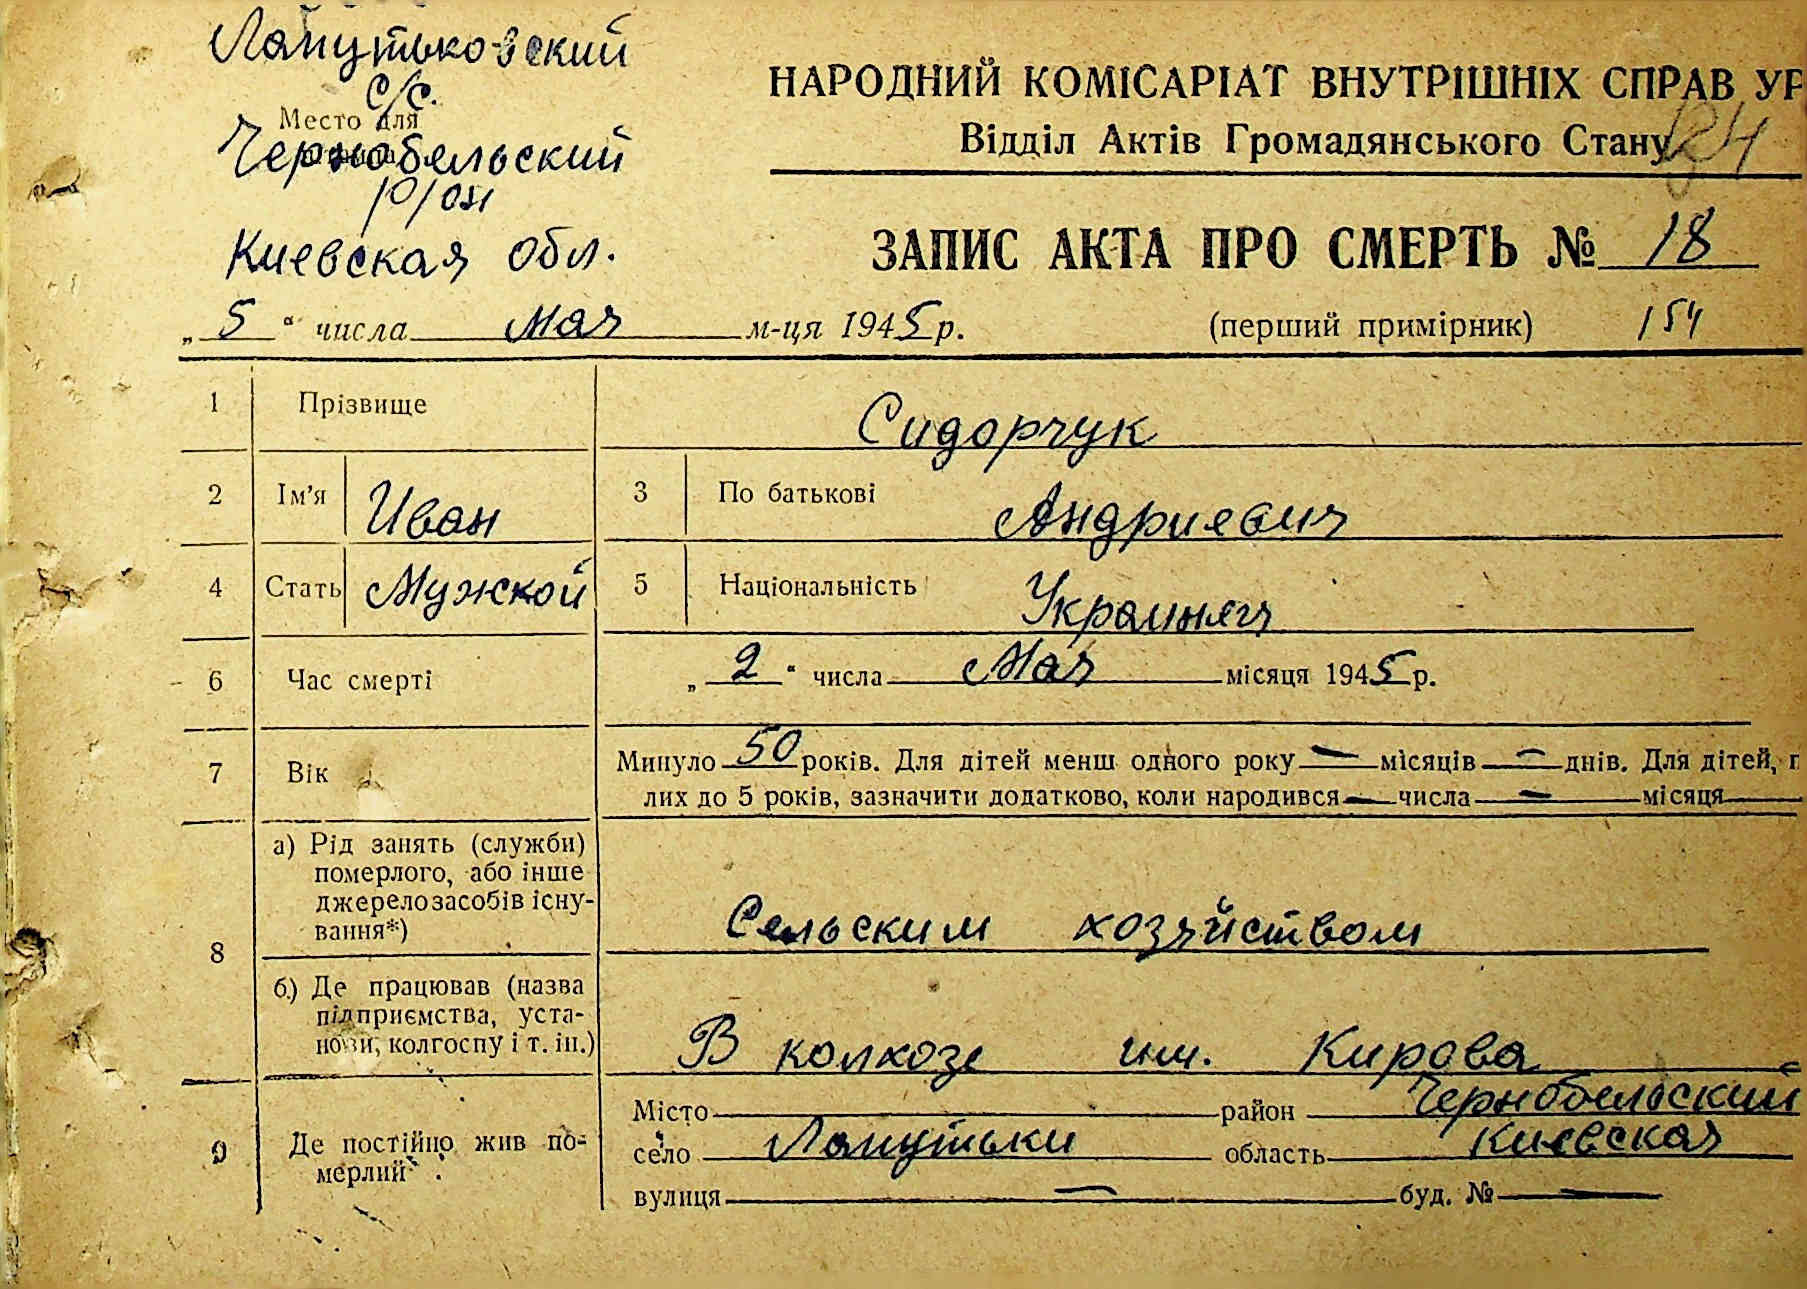 Лапутьковский
с/с.
Место для
Чернобельский
р/он
Киевская обл.
НАРОДНИЙ КОМІСАРІАТ ВНУТРІШНІХ СПРАВ УР
Відділ Актів Громадянського Стану
ЗАПИС АКТА ПРО СМЕРТЬ № 18
„ 5 “ числа мая м-ця 1945 р. (перший примірник) 154
1 Прізвище Сидорчук
2 Ім'я Иван 3 По батькові Андриевич
4 Стать Мужской 5 Національність Украинец
6 Час смерті „ 2 “ числа Мая місяця 1945 р.
7 Вік Минуло 50 років. Для дітей менш одного року — місяців — днів. Для дітей, п
лих до 5 років, зазначити додатково, коли народився — числа — місяця
8 а) Рід занять (служби)
померлого, або інше
джерело засобів існу-
вання*)
Сельским хозяйством
б) Де працював (назва
підприємства, уста-
нови, колгоспу і т. ін.)
В колхозе им. Кирова
9 Де постійно жив по-
мерлий
Місто район Чернобельский
село Лапутьки область Киевская
вулиця — буд. № —